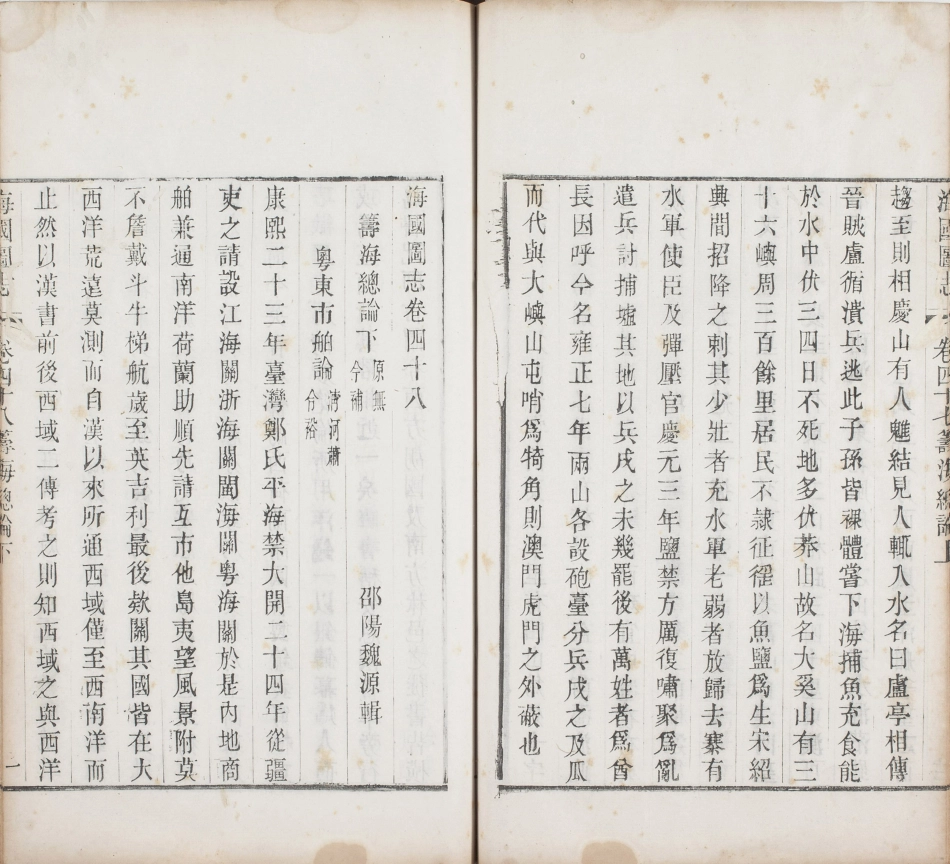 海國圖志 卷四十七籌海總論上
趨至則相慶山有人魋結見人輒入水名曰盧亭相傳
晉賊盧循潰兵逃此子孫皆裸體嘗下海捕魚充食能
於水中伏三四日不死地多伏莽山故名大奚山有三
十六嶼周三百餘里居民不隸征徭以魚鹽爲生宋紹
興間招降之刺其少壯者充水軍老弱者放歸去寨有
水軍使臣及彈壓官慶元三年鹽禁方厲復嘯聚爲亂
遣兵討捕墟其地以兵戍之未幾罷後有萬姓者爲酋
長因呼今名雍正七年兩山各設砲臺分兵戍之及瓜
而代與大嶼山屯哨爲犄角則澳門虎門之外蔽也
海國圖志卷四十八
邵陽魏源輯
籌海總論下 原無今補
粵東市舶論 蕭令裕
康熙二十三年臺灣鄭氏平海禁大開二十四年從疆
吏之請設江海關浙海關閩海關粵海關於是內地商
舶兼通南洋荷蘭助順先請互市他島夷望風景附莫
不詹戴斗牛梯航歲至英吉利最後欵關其國皆在大
西洋荒遠莫測而自漢以來所通西域僅至西南洋而
止然以漢書前後西域二傳考之則知西域之與西洋
海國圖志 卷四十八籌海總論下 一